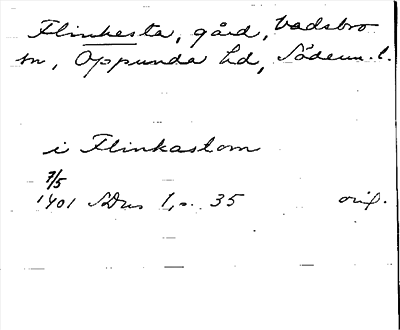 Flinkesta, gård, Vadsbro
sn, Oppunda hd, Söderm. l.
i Flinkastom
7/5
1401 SDns 1, s. 35 orig.